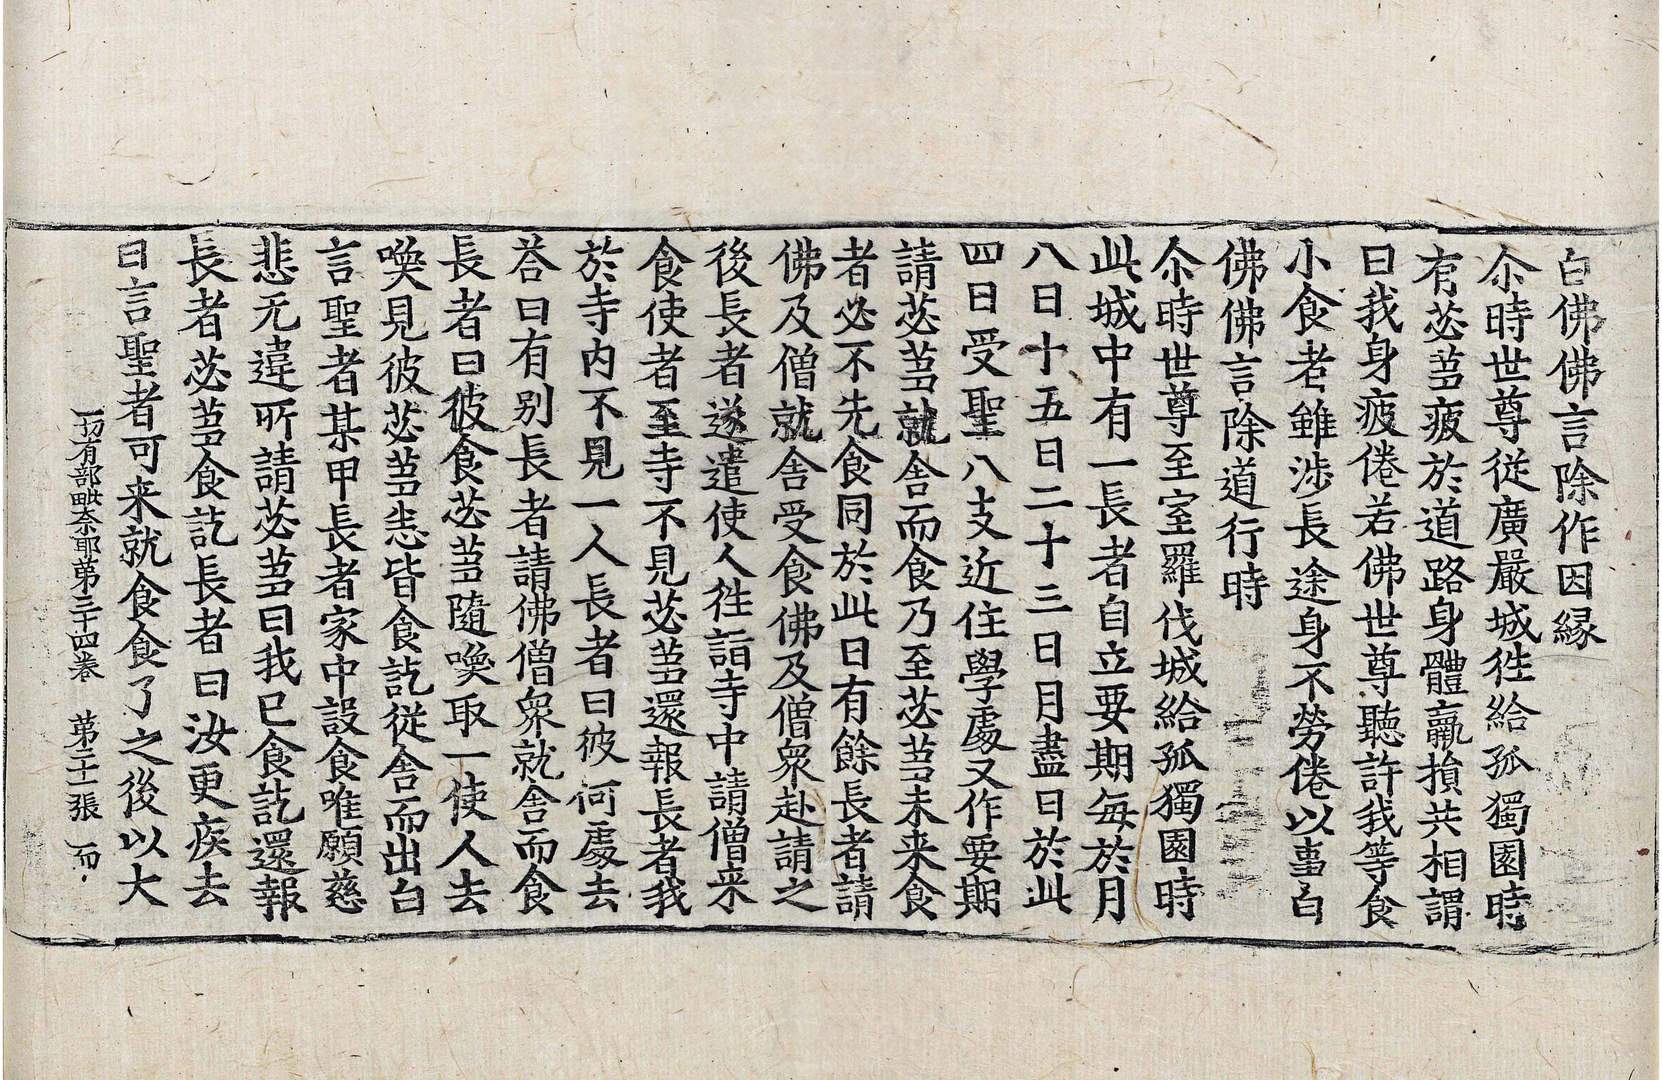 白佛佛言除作因縁
尒時世尊從廣嚴城徃給孤獨園時
有苾芻疲於道路身體羸損共相謂
曰我身疲倦若佛世尊聽許我等食
小食者雖涉長途身不勞倦以事白
佛佛言除道行時
尒時世尊至室羅伐城給孤獨園時
此城中有一長者自立要期每於月
八日十五日二十三日月盡日於此
四日受聖八支近住學處又作要期
請苾芻就舍而食乃至苾芻未来食
者必不先食同於此日有餘長者請
佛及僧就舍受食佛及僧衆赴請之
後長者遂遣使人徃詣寺中請僧来
食使者至寺不見苾芻還報長者我
於寺内不見一人長者曰彼何處去
荅曰有别長者請佛僧衆就舍而食
長者曰彼食苾芻隨喚取一使人去
喚見彼苾芻悉皆食訖從舍而出白
言聖者某甲長者家中設食唯願慈
悲无違所請苾芻曰我已食訖還報
長者苾芻食訖長者曰汝更疾去
曰言聖者可来就食食了之後以大
一切有部毗奈耶第三十四卷 第二十一張 而